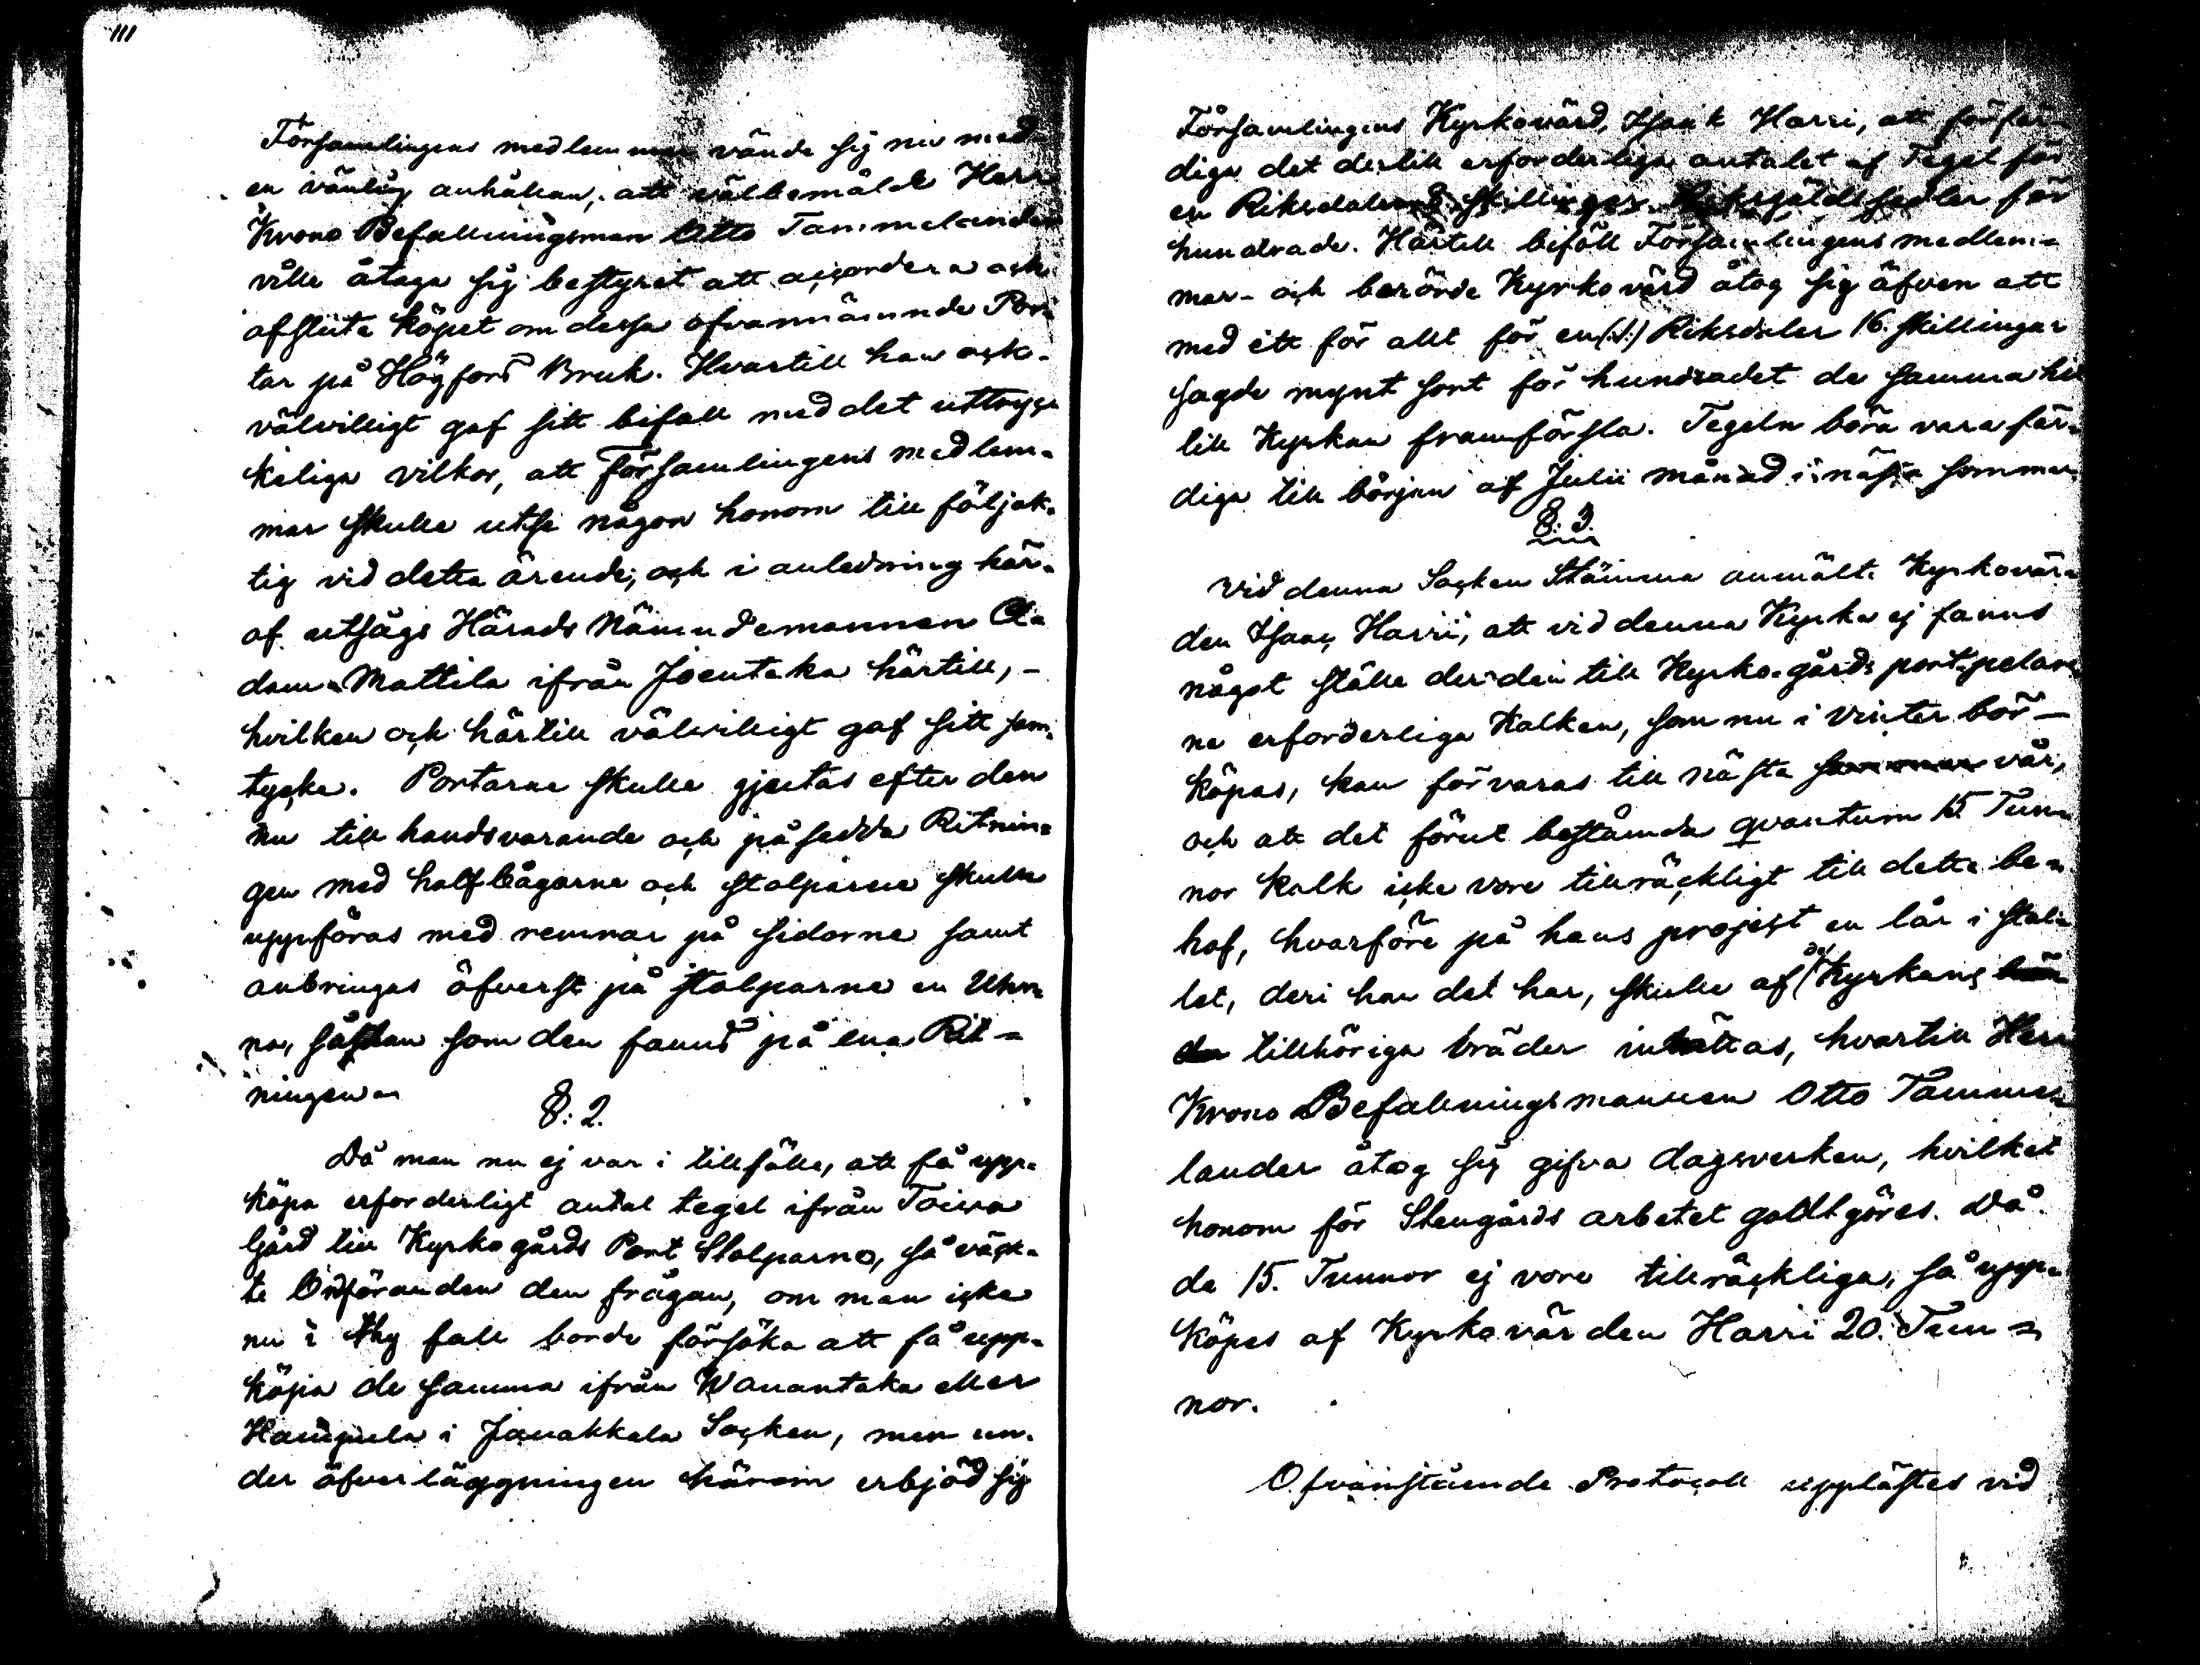 111
Församlingens medlemmar vände sig nu med
en vänlig anhållan, att välbemälde Herr
Krono Befallningsman Otto Tammelander
ville åtaga sig bestyret att accordera och
afsluta köpet om dessa ofvannämnde Por-
tar på Högfors Bruk. Hvartill han ock-
välvilligt gaf sitt bifall med det uttryc-
keliga vilkor, att Församlingens medlem-
mar skulle utse någon honom till följak-
tig vid detta ärende; och i anledning här-
af utsågs Härads Nämndemannen A-
dam Mattila ifrån Joentaka härtill, -
hvilken och härtill välvilligt gaf sitt sam-
tycke. Portarne skulle gjutas efter den
nu till handsvarande och påsedda Ritnin-
gen med halfbågarne och stolparne skulle
uppföras med remnar på sidorne samt
anbringas öfverst på stolparne en Uhr-
na, sådan som den fanns på ena Rit-
ningen.
§: 2.
Då man nu ej var i tillfälle, att få upp-
köpa erforderligt antal tegel ifrån Toiva
Gård till Kyrkogårds Port Stolparne, så väck-
te Ordföranden den frågan, om man icke
nu i thy fall borde försöka att få upp-
köpa de samma ifrån Wanantaka eller
Hampula i Janakkala Socken, men un-
der öfverläggningen härom erbjöd sig
Församlingens Kyrkovärd, Isaak Harri, att förfär-
diga det dertill erforderliga antalet af Tegel för
en Riksdaler 8 skillingar Riksgäldssedlar för
hundrade. Härtill biföll Församlingens medlem-
mar- och berörde Kyrkovärd åtog sig äfven att
med ett för allt för en (1:) Riksdaler 16. skillingar
sagde mynt sort för hundradet de samma hit
till Kyrkan framförsla. Tegeln böra vara fär-
diga till början af Julii månad i nästa sommar.
§: 3.
Vid denna Socken Stämma anmälte Kyrkovär-
den Isaac Harri, att vid denna Kyrka ej fanns
något ställe der den till Kyrko-gårds port-pelar-
ne erforderliga Kalken, som nu i vinter bör-
köpas, kan förvaras till nästa sommar vår,
och att det förut bestämda qvantum 15 Tun-
nor kalk icke vore tillräckligt till detta be-
hof, hvarföre på hans project en lår i stal-
let, deri han det har, skulle af de Kyrkans
tillhöriga bräder inrättas, hvartill Herr
Krono Befallningsmannen Otto Tamme-
lander åtog sig gifva dagsverken, hvilket
honom för Stengårds arbetet godtgöres. Då
de 15. Tunnor ej vore tillräckliga, så upp-
köpes af Kyrkovärden Harri 20. Tun-
nor.
Ofvanstående Protocoll upplästes vid